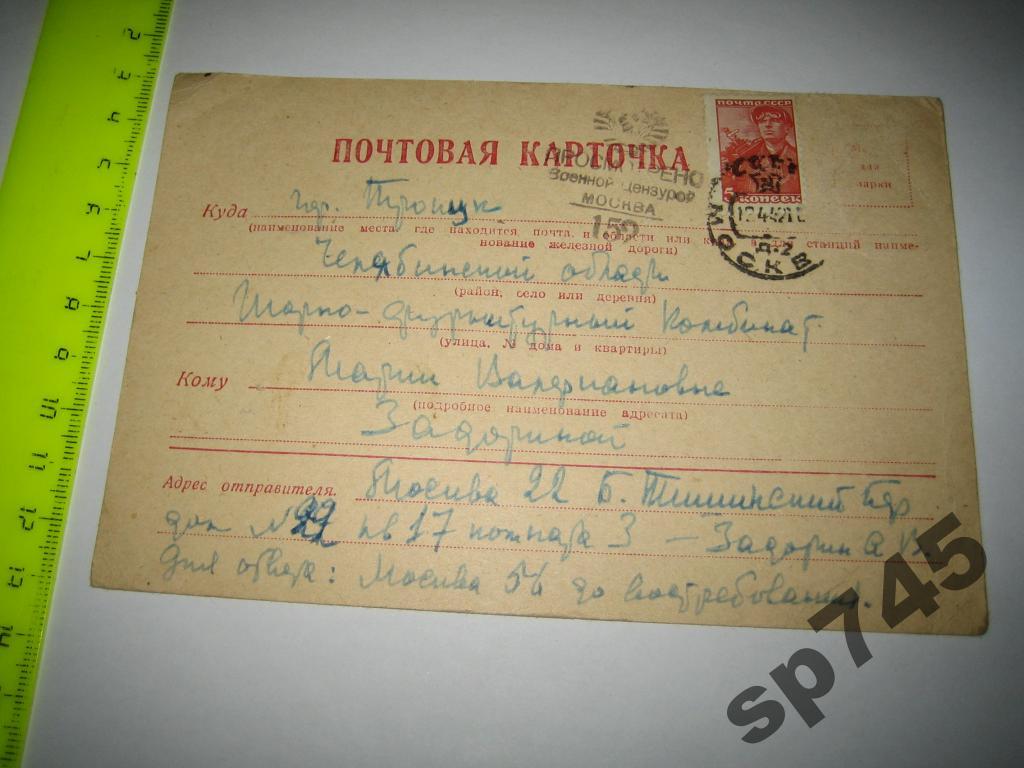 ПОЧТА СССР
5 КОПЕЕК
М
для
марки
ПОЧТОВАЯ КАРТОЧКА
ПРОСМОТРЕНО
Военной Цензурой
МОСКВА
159
МОСКВА
Куда гор. Троицк
(наименование места, где находится почта, и области или края, а для станций наиме-
нование железной дороги)
Челябинской области
(район, село или деревня)
Шарно-фурнитурный Комбинат
(улица, № дома и квартиры)
Кому Марии Валериановне
(подробное наименование адресата)
Задориной
Адрес отправителя. Москва 22 Б. Тишинский пер
дом № 22 кв 17 комната 3 – Задорин А В.
Для ответа: Москва 56 до востребования.
sp745
2 3 4 5 6 7 8 9 10 11 12 13 14